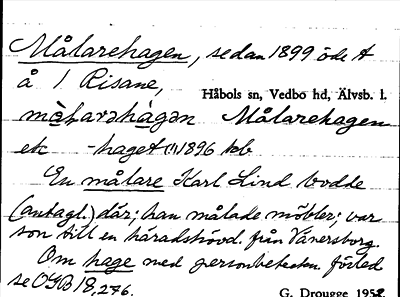 Målarehagen, sedan 1899 öde t
å 1 Risane,
Håbols sn, Vedbo hd, Älvsb. l.
Målarehagen
ek -haget (!) 1896 tob
En målare Karl Lind bodde
(antagl.) där; han målade möbler; var
son till en häradshövd. från Vänersborg.
Om hage med personbeteckn. förled
se OGB 18, 276.
G. Drougge 1952.